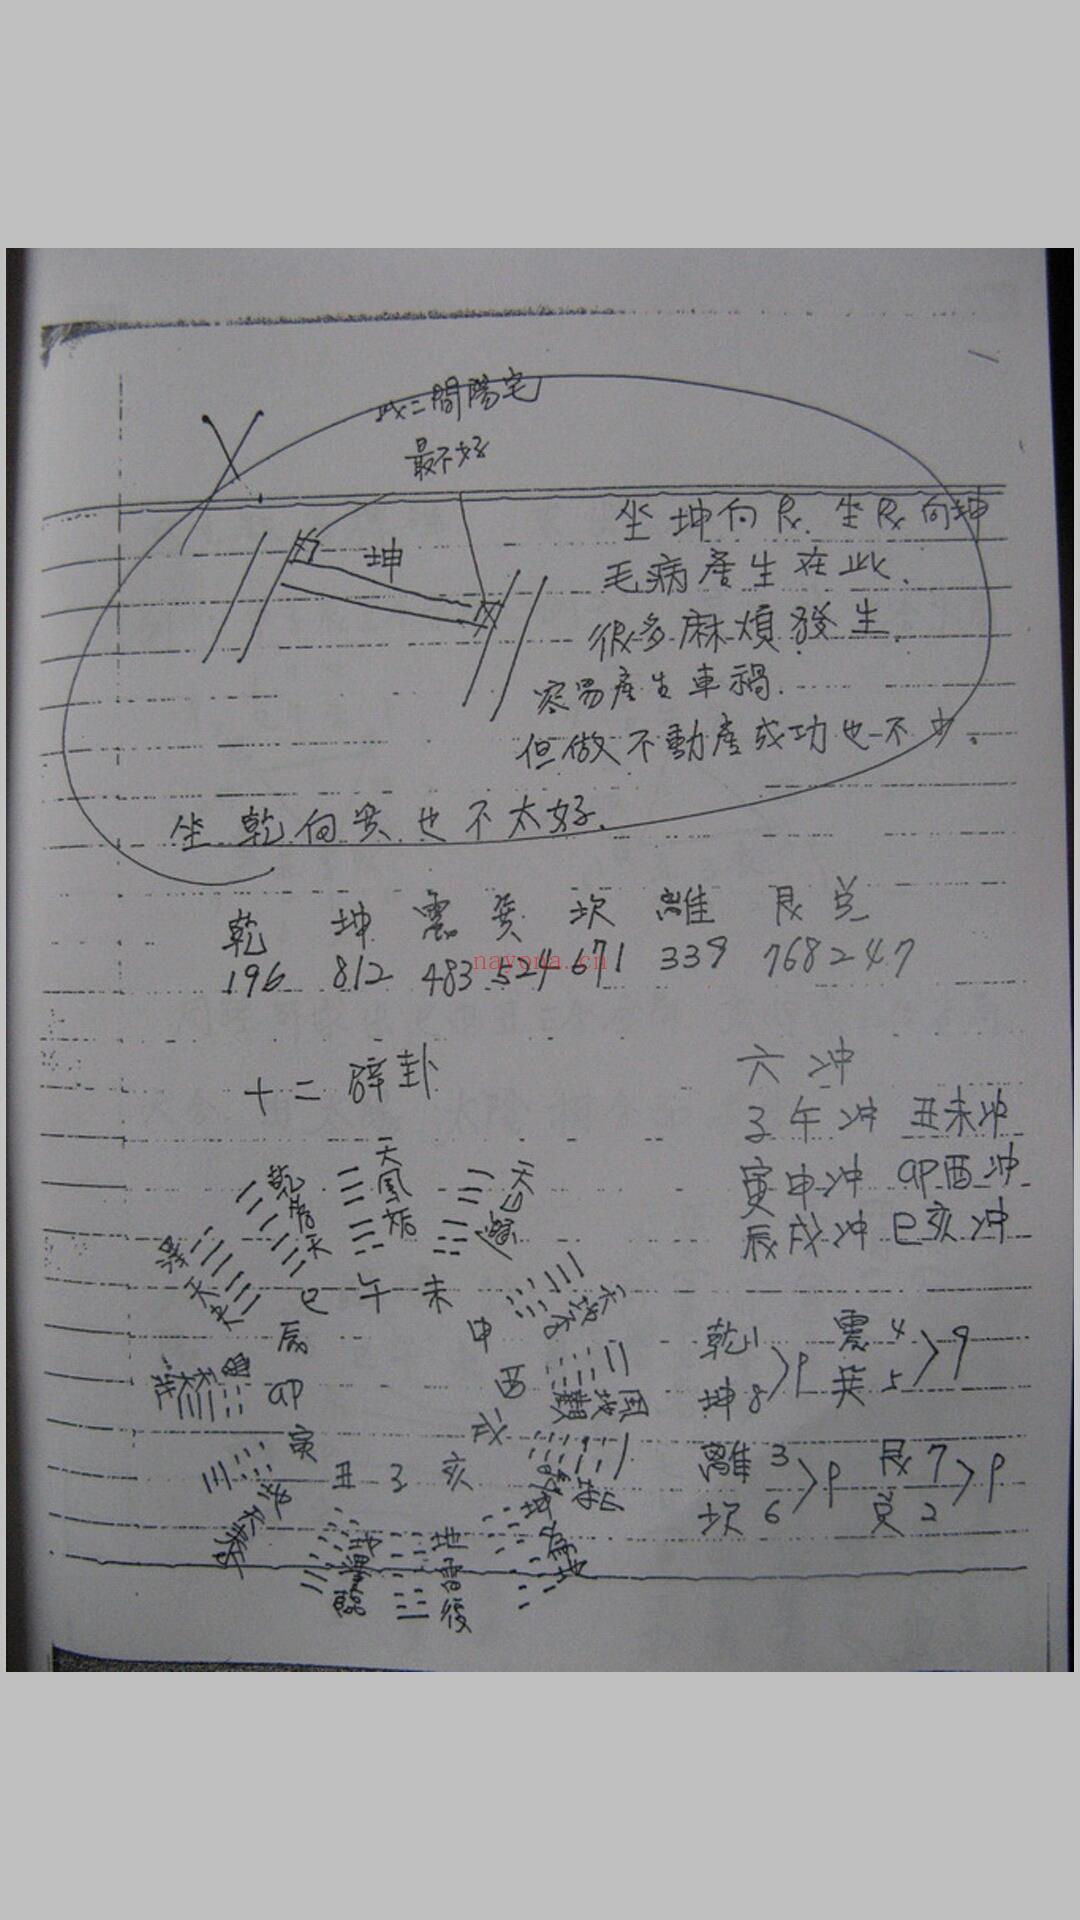 此二間陽宅
最不好
坤
坐坤向艮.坐艮向坤
毛病產生在此.
很多麻煩發生.
容易產生車禍.
但做不動產成功也不少。
坐乾向巽也不太好.
乾 坤 震 巽 坎 離 艮 兌
196 812 483 524 671 339 768 247
nayona.cn
十二辟卦
六冲
子午冲 丑未冲
寅申冲 卯酉冲
辰戌冲 巳亥冲
乾為天
天風姤
天山遯
天地否
風地觀
山地剝
坤為地
地雷復
地澤臨
地天泰
澤天夬
巳 午 未
辰 申
卯 酉
寅 戌
丑 子 亥
乾1 坤8 > 9
震4 巽5 > 9
離3 坎6 > 9
艮7 兌2 > 9